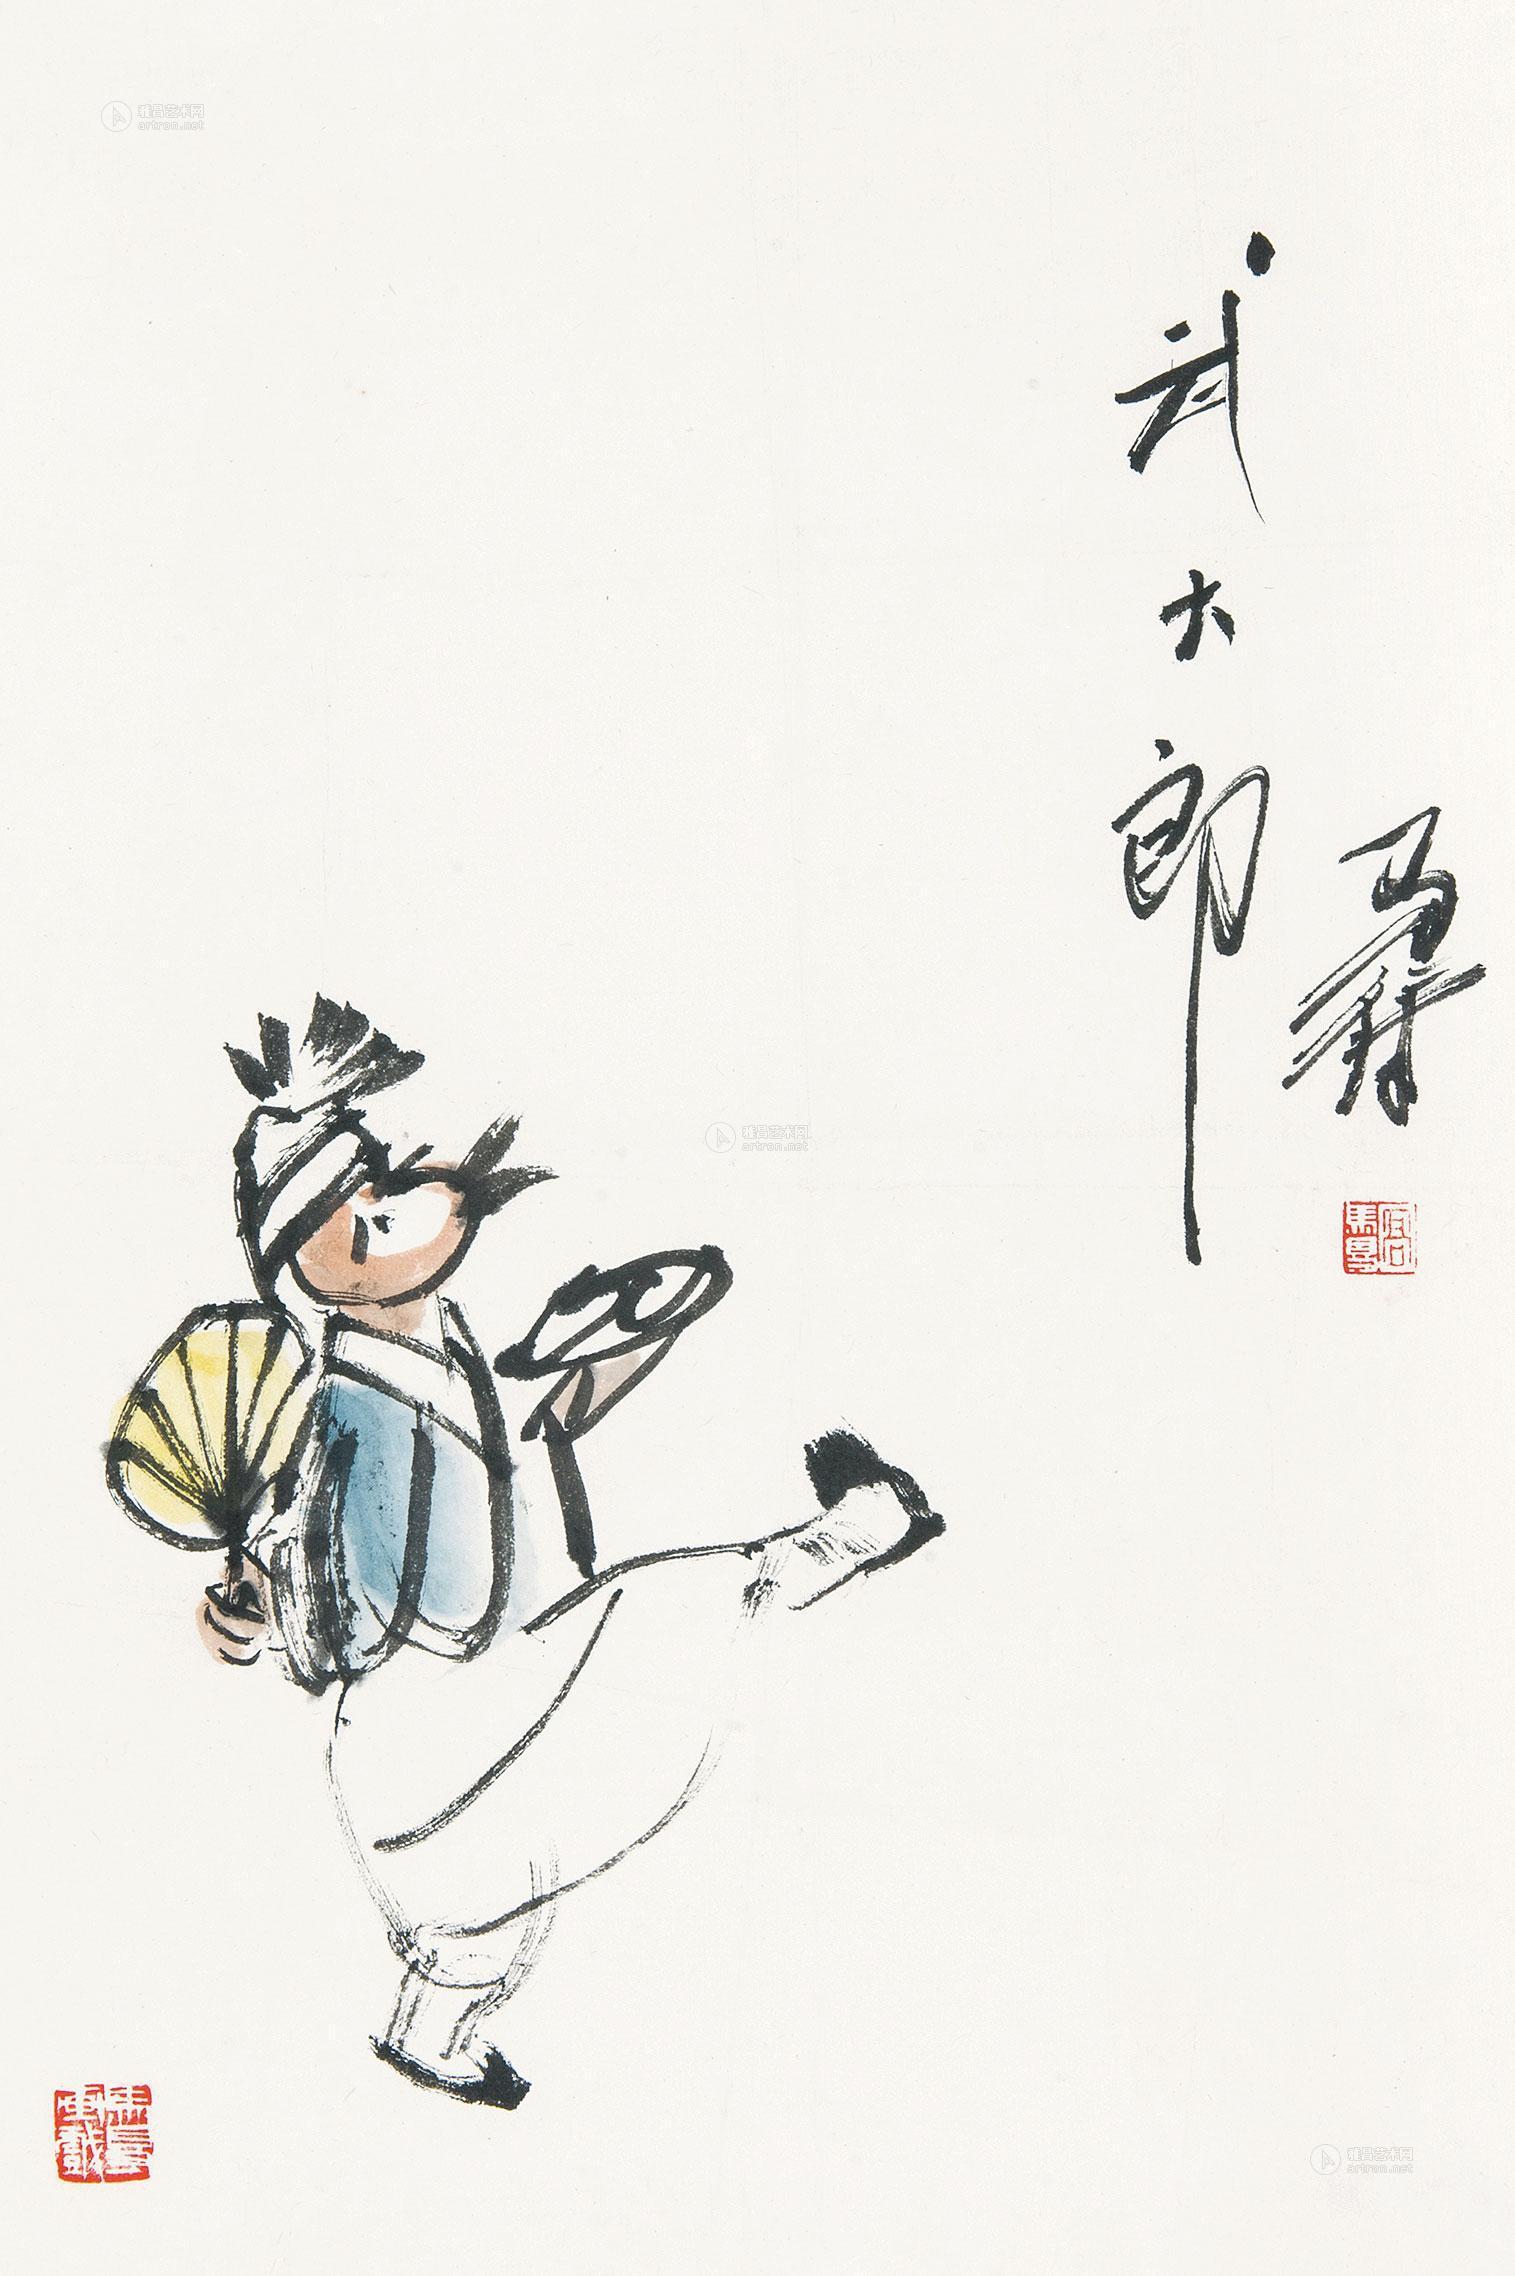 雅昌艺术网
artron.net
武大郎
马得
雅昌艺术网
artron.net
雅昌艺术网
artron.net